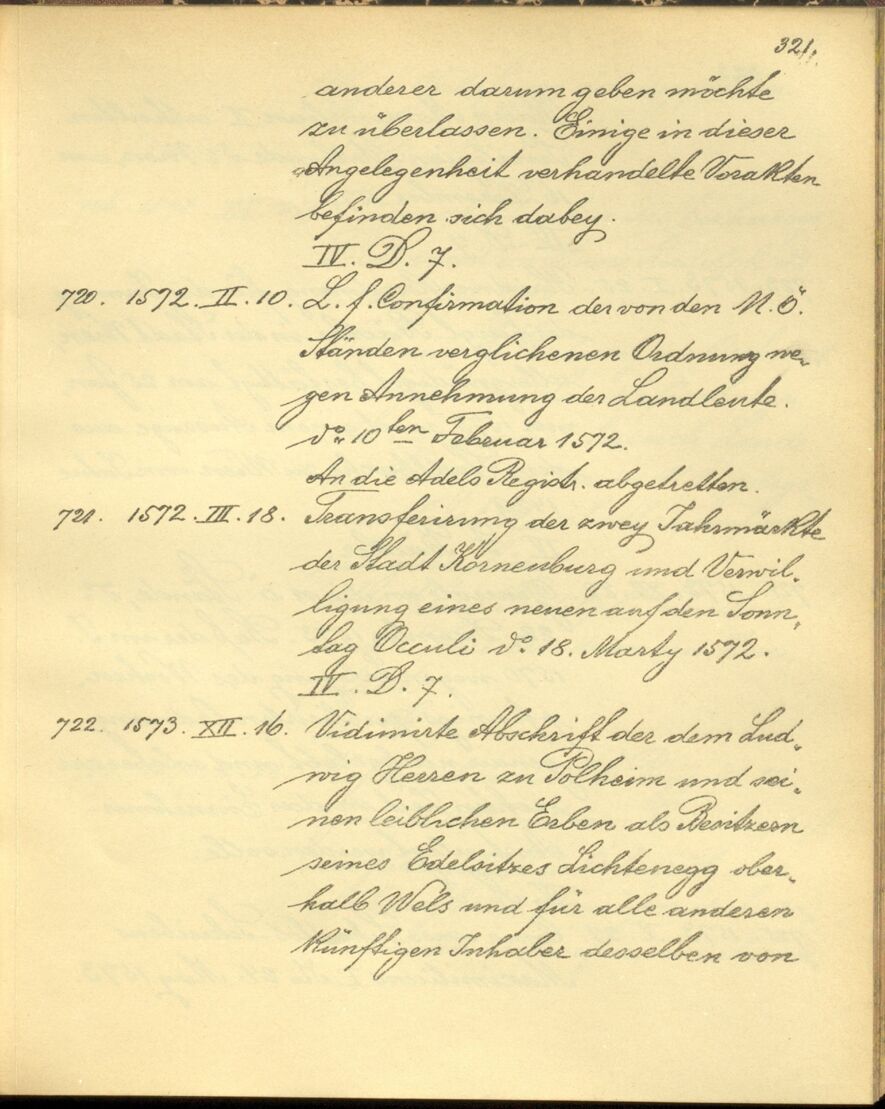 321.
anderer darum geben möchte
zu überlassen. Einige in dieser
Angelegenheit verhandelte Vorakten
befinden sich dabey.
IV. D. 7.
720. 1572. II. 10. L. f. Confirmation der von den N. Ö.
Ständen verglichenen Ordnung we„
gen Annehmung der Landleute.
do 10ten Februar 1572.
An die Adels Registr. abgetretten.
721. 1572. III. 18. Transferirung der zwey Jahrmärkte
der Stadt Korneuburg und Verwil„
ligung eines neuen auf den Sonn„
tag Occuli do 18. Marty 1572.
IV. D. 7.
722. 1573. XII. 16. Vidimirte Abschrift der dem Lud„
wig Herren zu Polheim und sei„
nen leiblichen Erben als Besitzern
seines Edelsitzes Lichtenegg ober„
halb Wels und für alle anderen
künftigen Inhaber desselben von